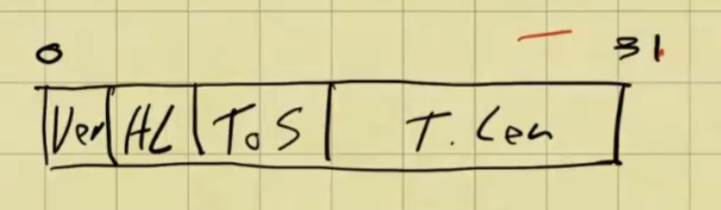 0 31
Ver HL ToS T. Len